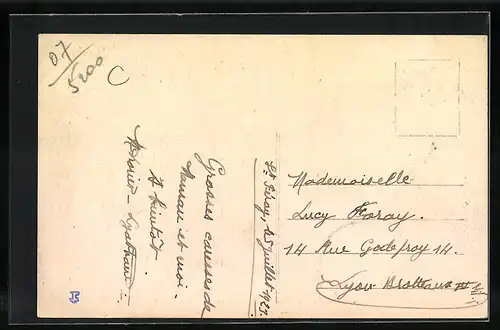 07/5200 C
St Péray, le 5 juillet 1923.
Grosses caresses de
Maman et moi.
A bientôt
Mademoiselle
Lucy Floray.
14 Rue Godefroy 14.
Lyon Brotteaux